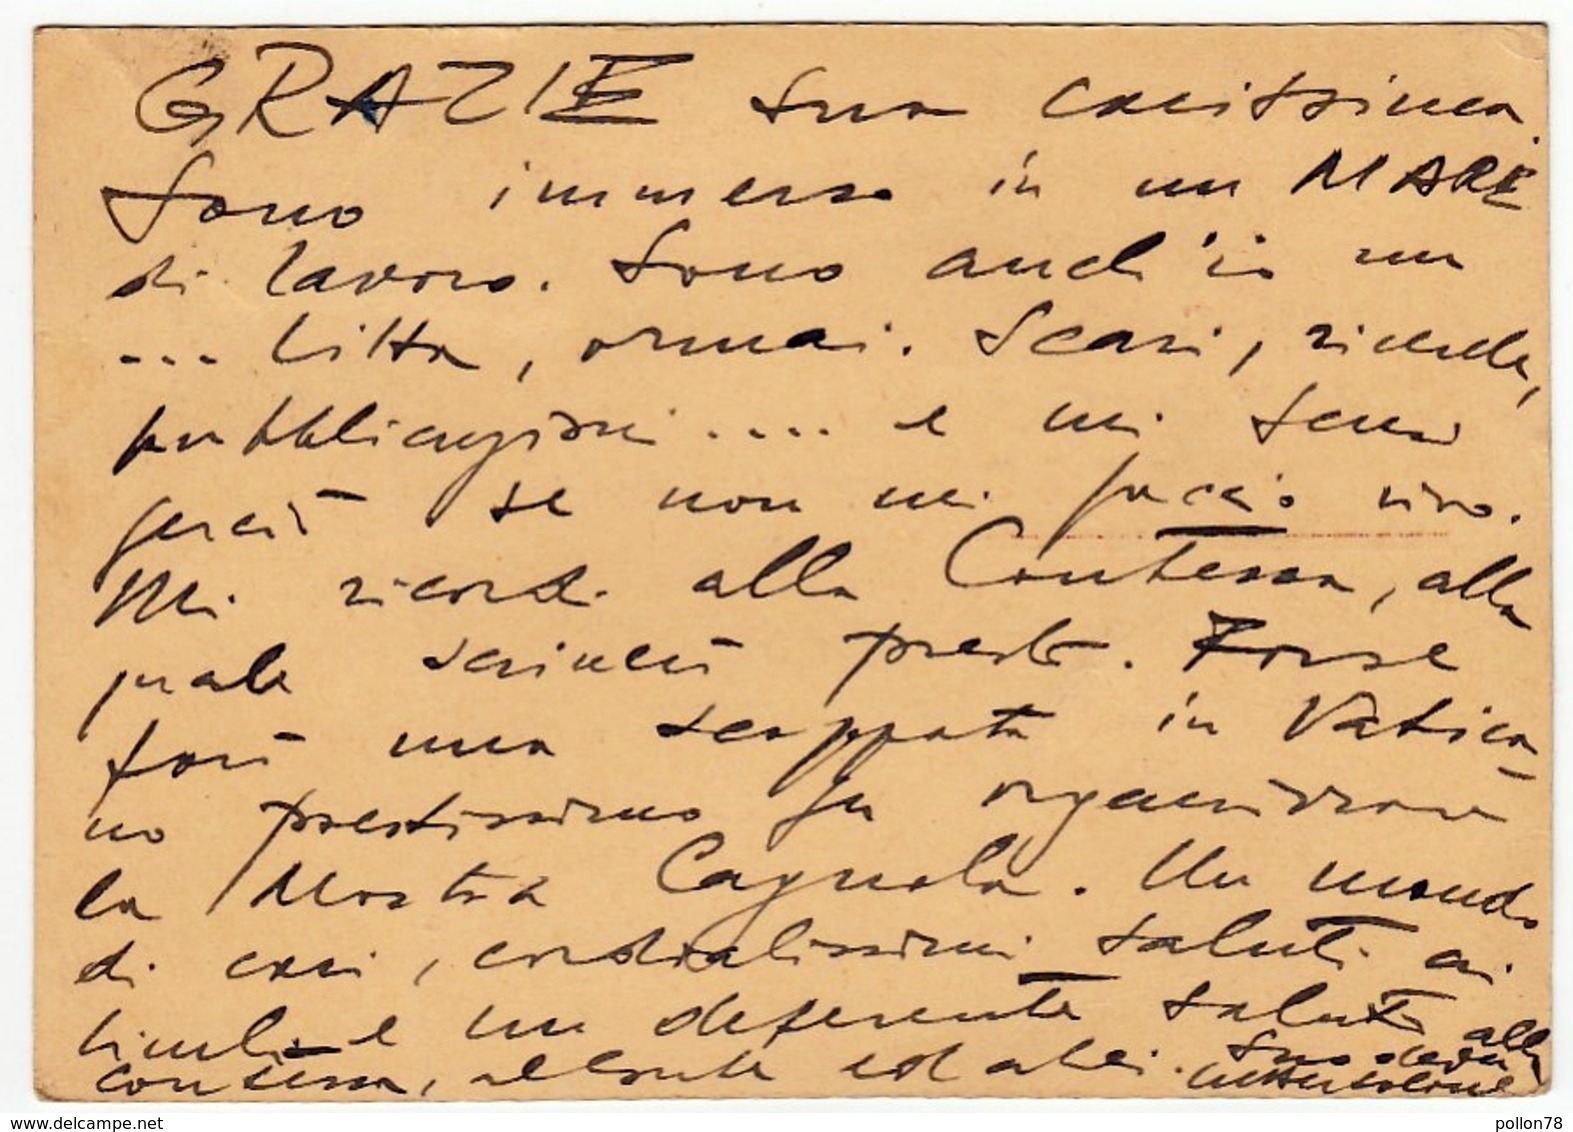 GRAZIE sua carissima.
Sono immerso in un MARE
di lavoro. Sono anch'io un
... ditta, ormai. Scavi, ricerche,
pubblicazioni .... e mi scuserà
se non mi faccio vivo.
Mi ricordi alla Contessa, alla
quale scriverò presto. Forse
farò una scappata in Vatica-
no prestissimo per organizzare
la Mostra Cagnola. Un mondo
di cari, cordialissimi saluti ai
e un deferente saluto alla
contessa, ed a lei. Suo
pollon78